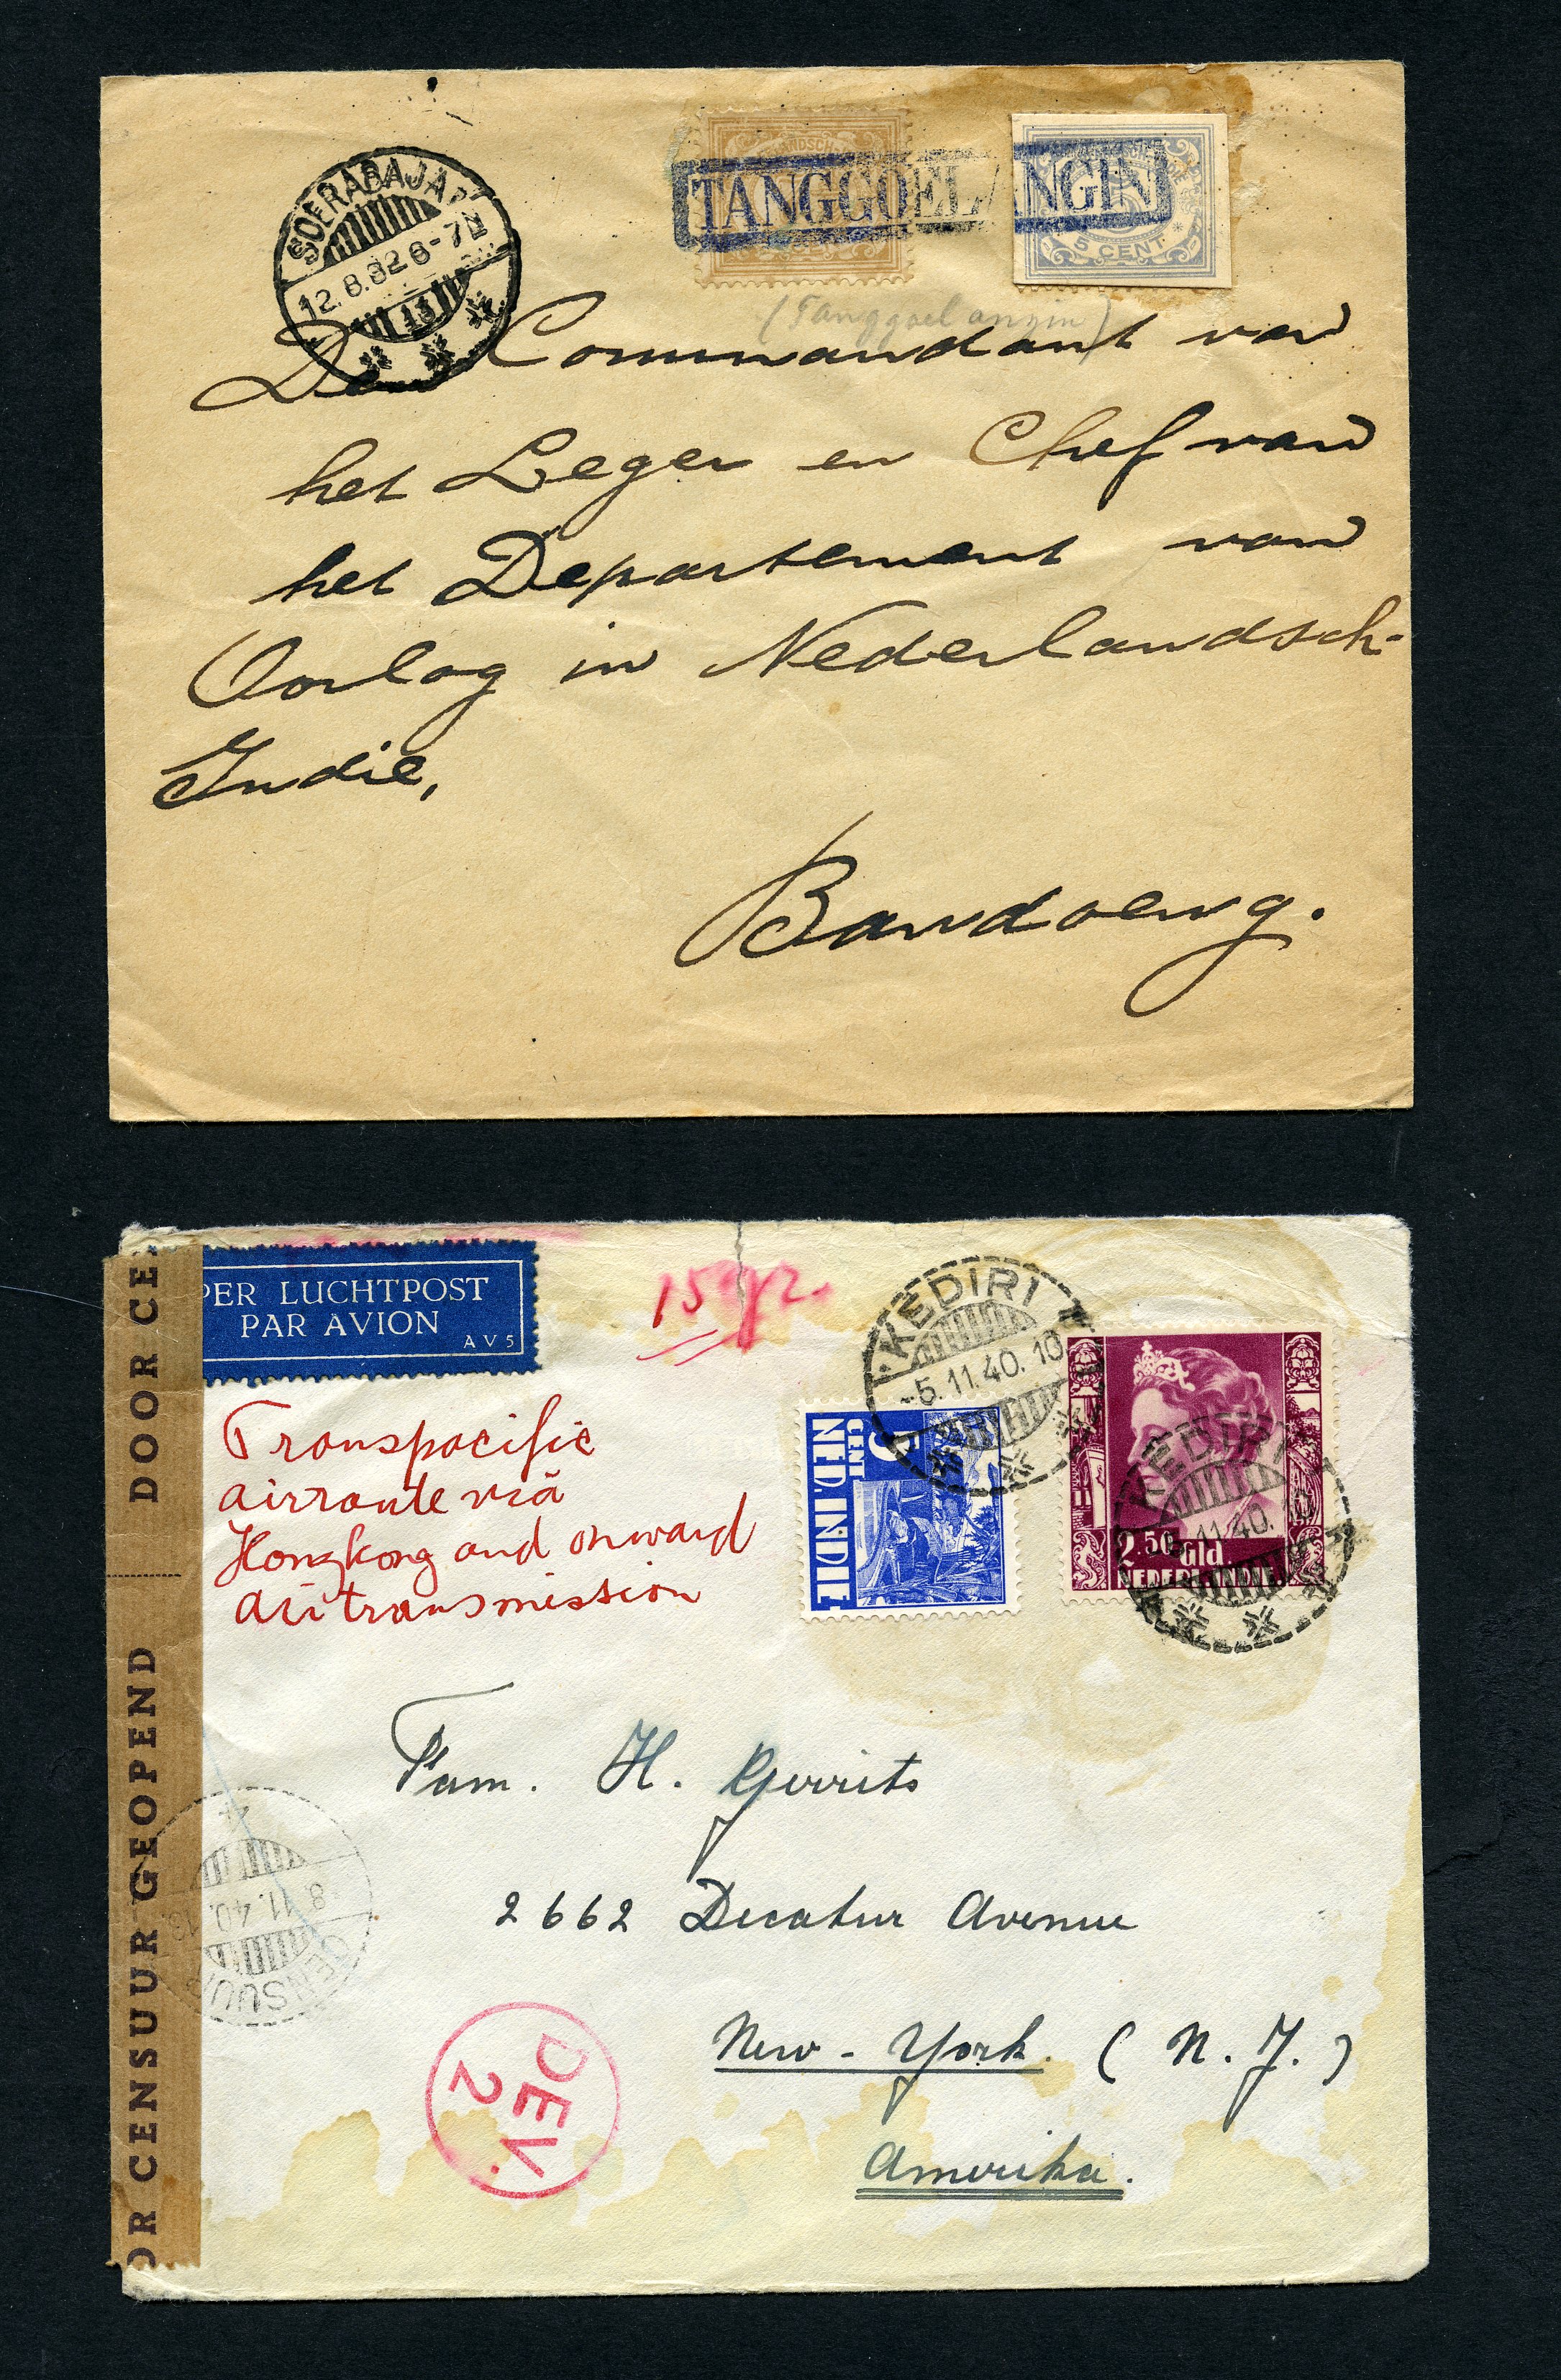 SOERABAJA
TANGGOELANGIN
5 CENT
(Tanggoelangin)
Den Commandant van
het Leger en Chef van
het Departement van
Oorlog in Nederlandsch-
Indie,
Bandoeng.
PER LUCHTPOST
PAR AVION
AV5
DOOR CE
OR CENSUUR GEOPEND
KEDIRI
-5.11.40.10
5
CENT
NED. INDIE
KEDIRI
11.40.10
2.50 Gld.
NEDERL. INDIE
Transpacific
airroute via
Hongkong and onward
airtransmission
Fam. H. Gerrits
2662 Decatur Avenue
New-York. (N.J.)
Amerika.
8.11.40.
CENSUUR
DEV.
2